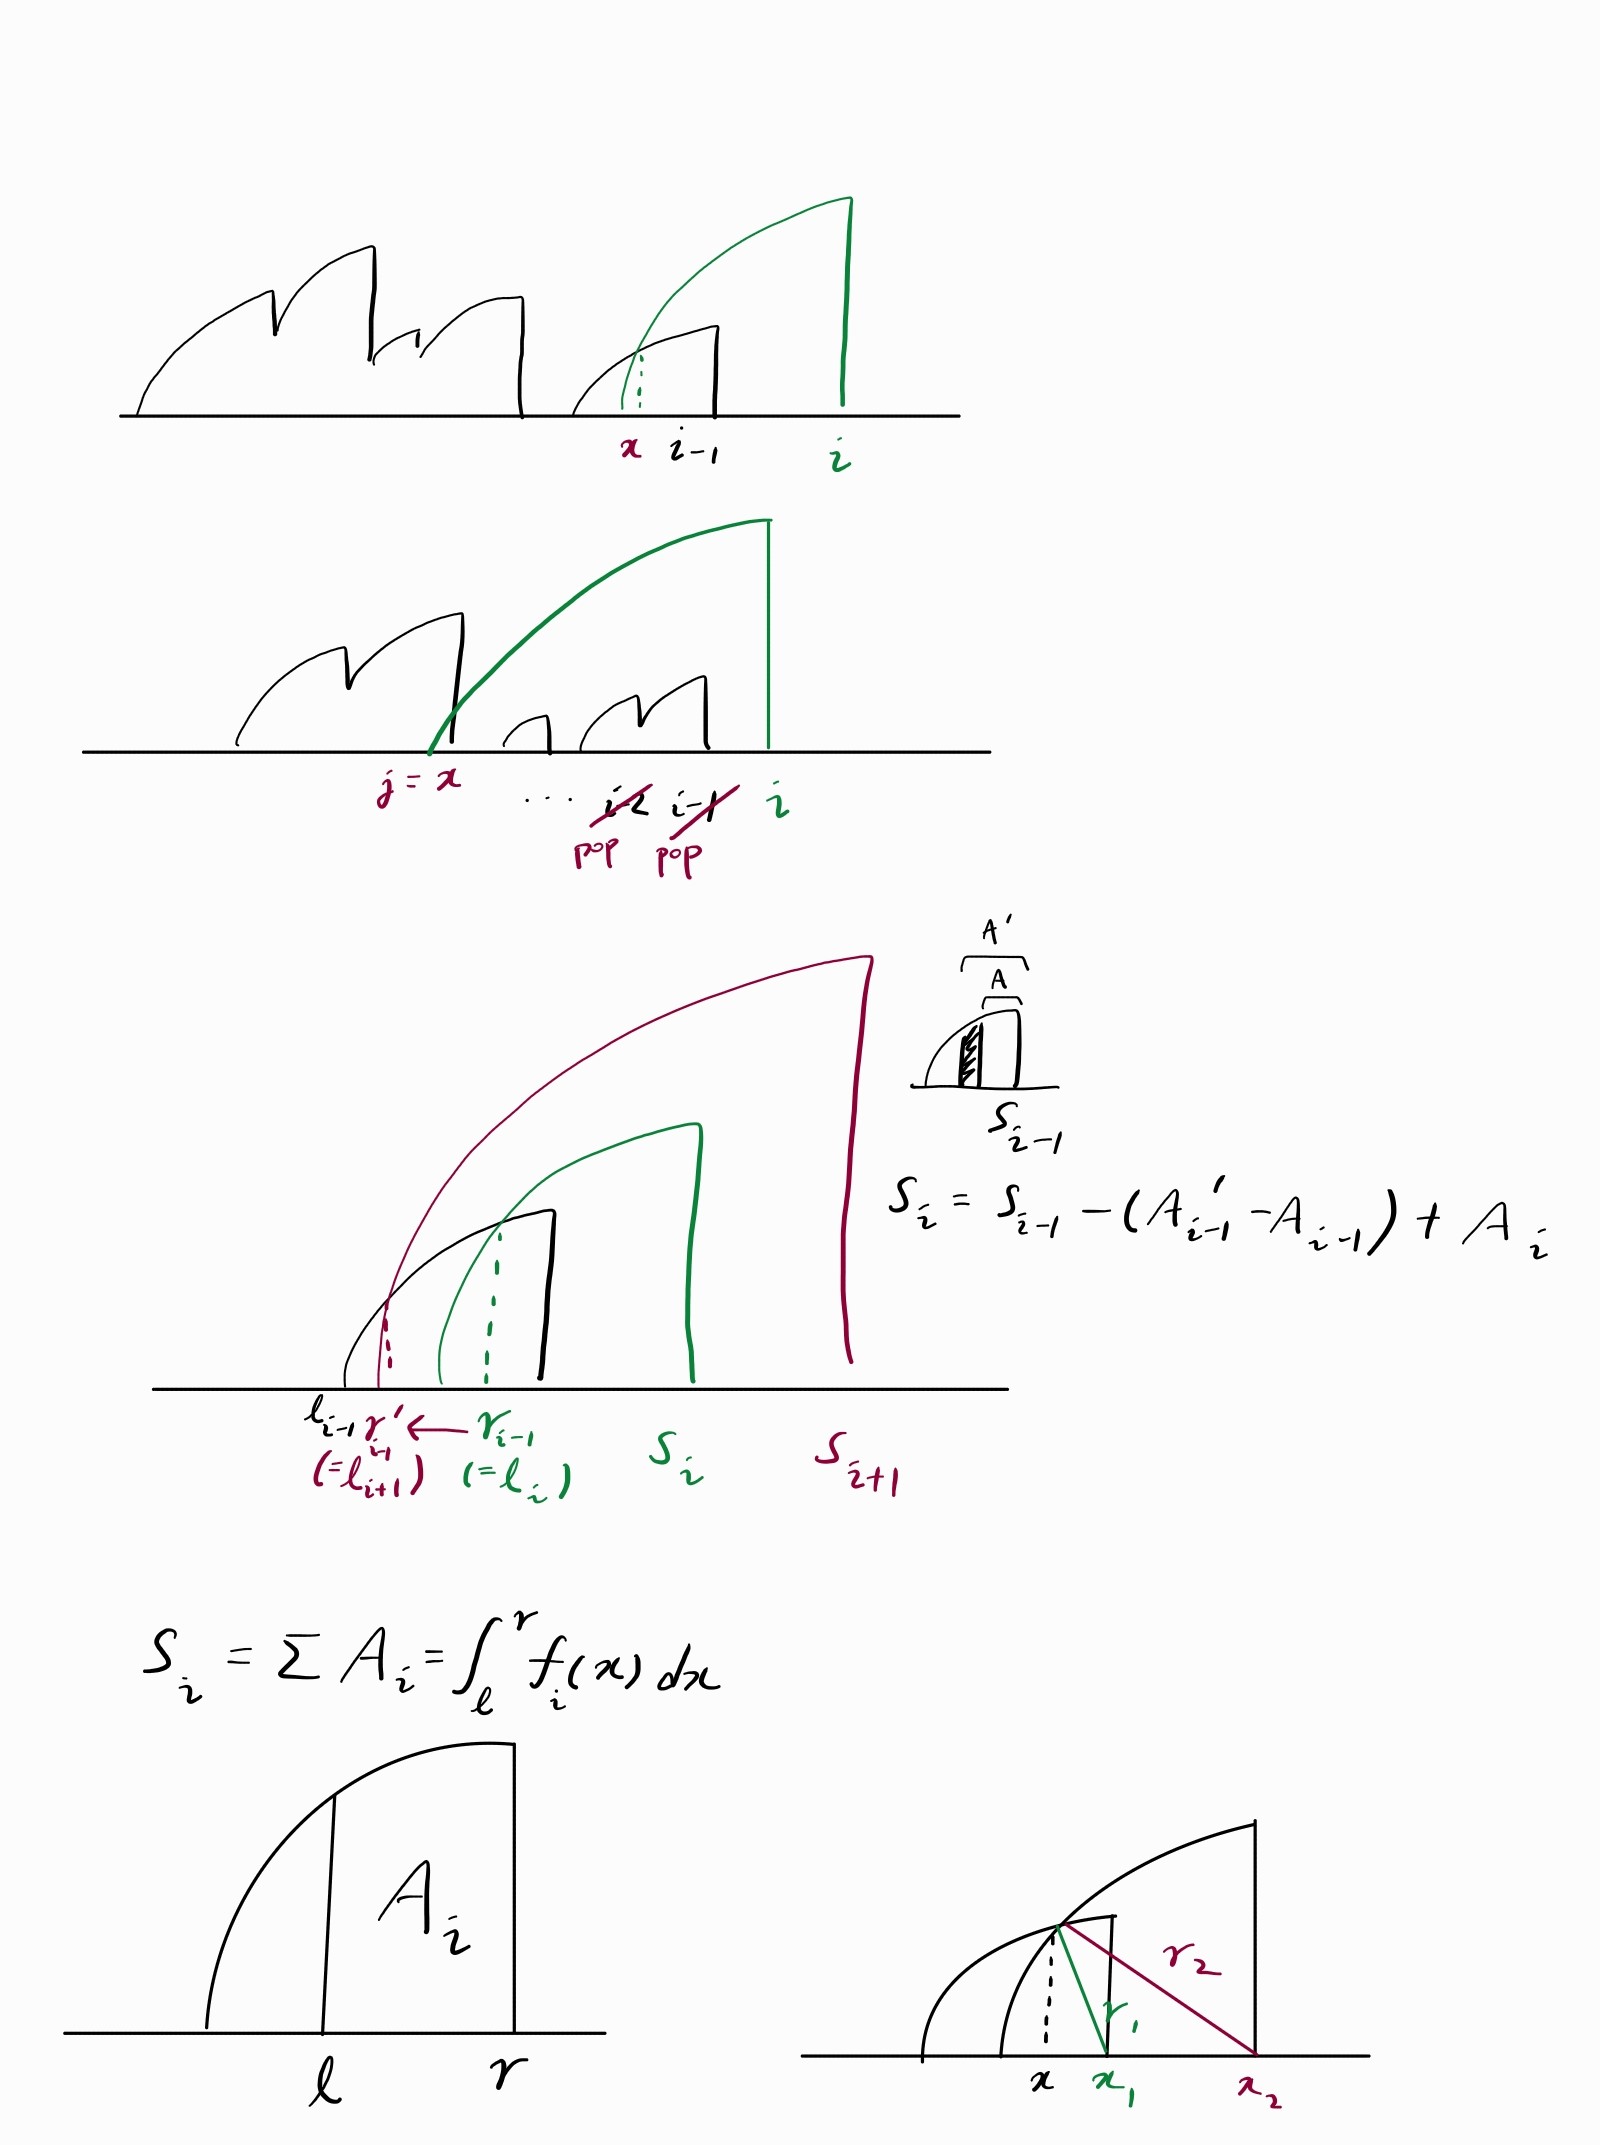 x i-1 i
j = x ... i-2 i-1 i
pop pop
A'
A
S_{i-1}
S_i = S_{i-1} - (A'_{i-1} - A_{i-1}) + A_i
l_{i-1} r'_{i-1} ← r_{i-1} S_i S_{i+1}
(=l_{i+1}) (=l_i)
S_i = Σ A_i = ∫_l^r f_i(x) dx
A_i
l r
r_2
r_1
x x_1 x_2